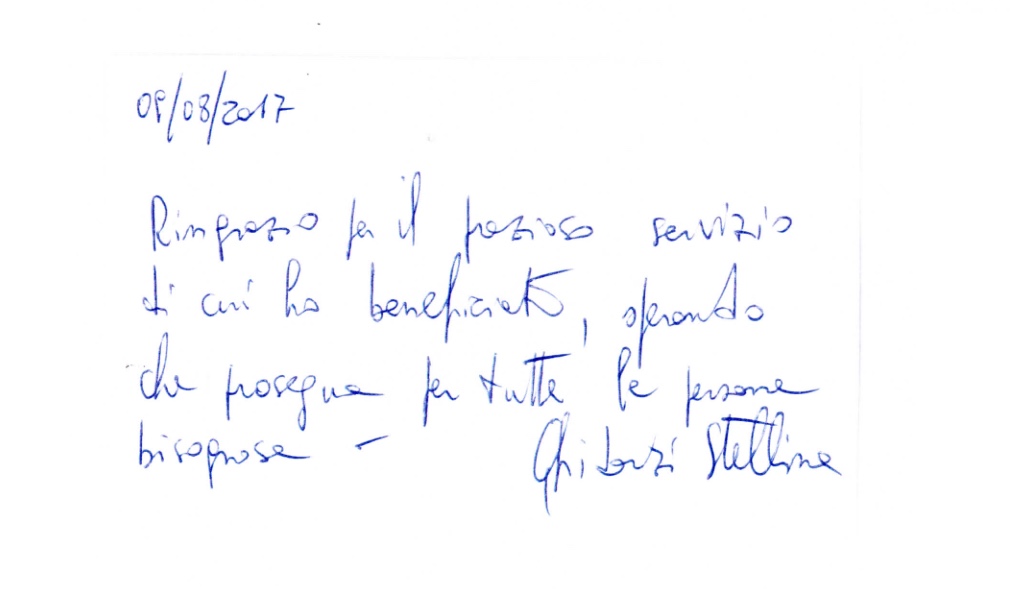 09/08/2017
Ringrazio per il prezioso servizio
di cui ho beneficiato, sperando
che prosegua per tutte le persone
bisognose –
Stellina